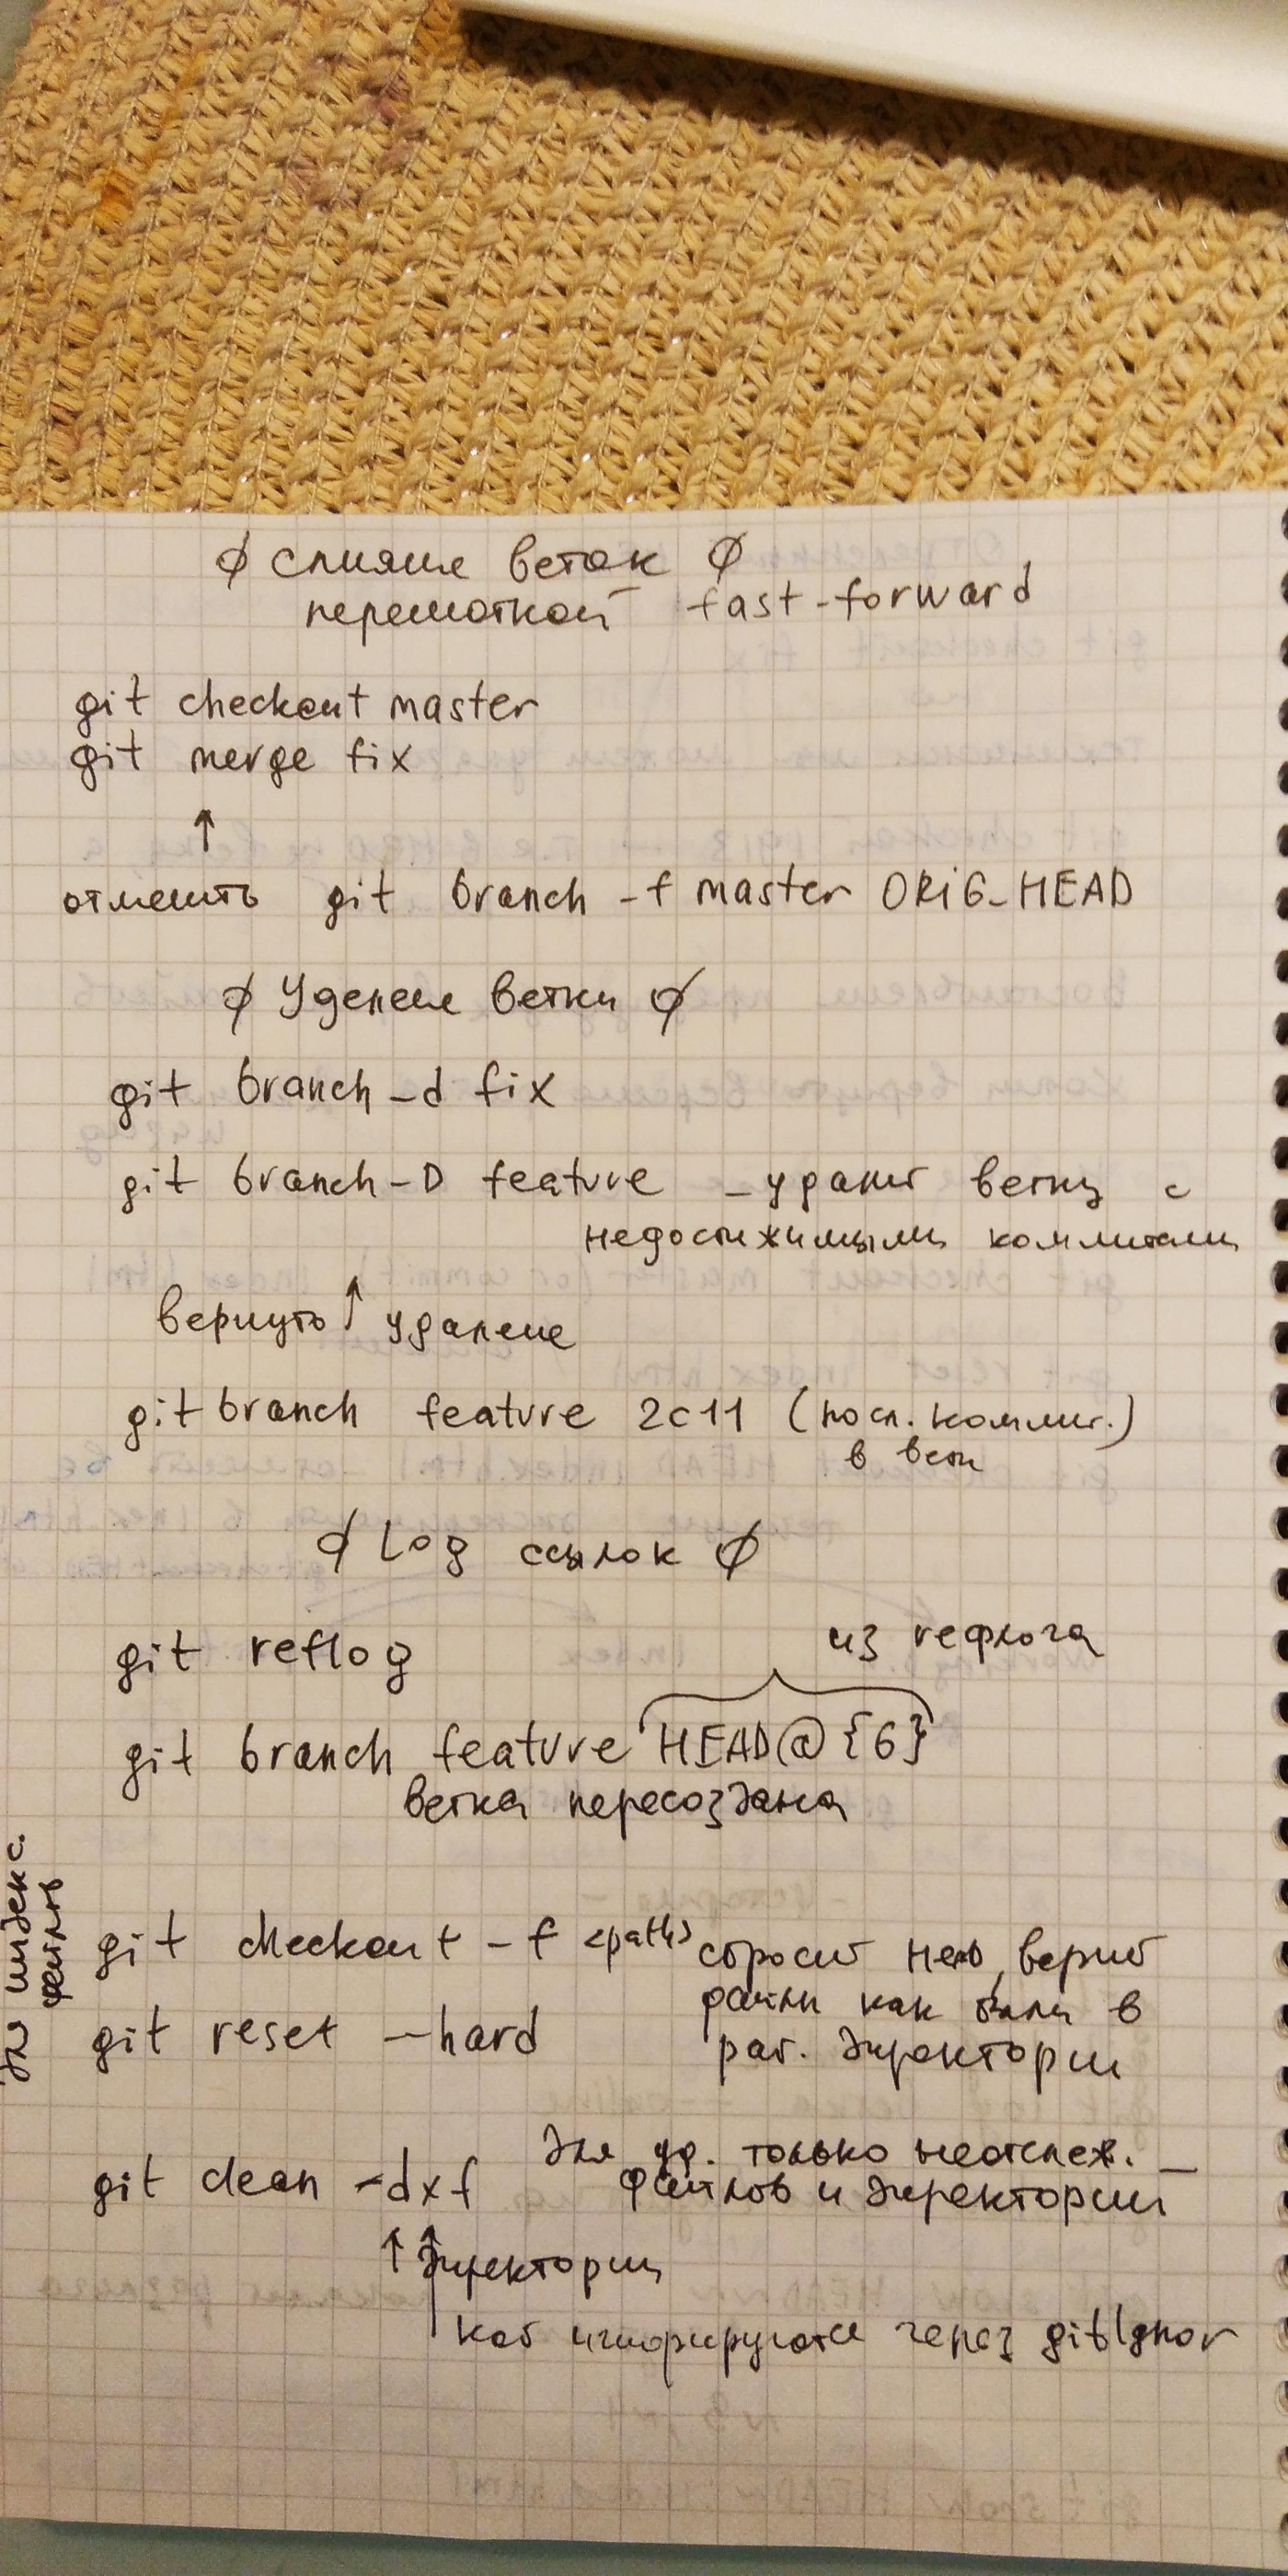 ∅ слияние веток ∅
перемоткой fast-forward
git checkout master
git merge fix
↑
отменить git branch -f master ORIG_HEAD
∅ Удаление ветки ∅
git branch -d fix
git branch -D feature - удалит ветку с
недостижимыми коммитами
вернуть ↑ удаление
git branch feature 2c11 (посл. коммит.)
в ветк
∅ Log ссылок ∅
git reflog
из рефлога
git branch feature HEAD@{6}
ветка пересоздана
для индекс.
файлов
git checkout -f <path> сбросит , вернит
файлы как были в
git reset --hard
раб. директории
для уд. только неотслеж.
git clean -dxf файлов и директории
↑ ↑ директории
игнорируются через gitIgnor